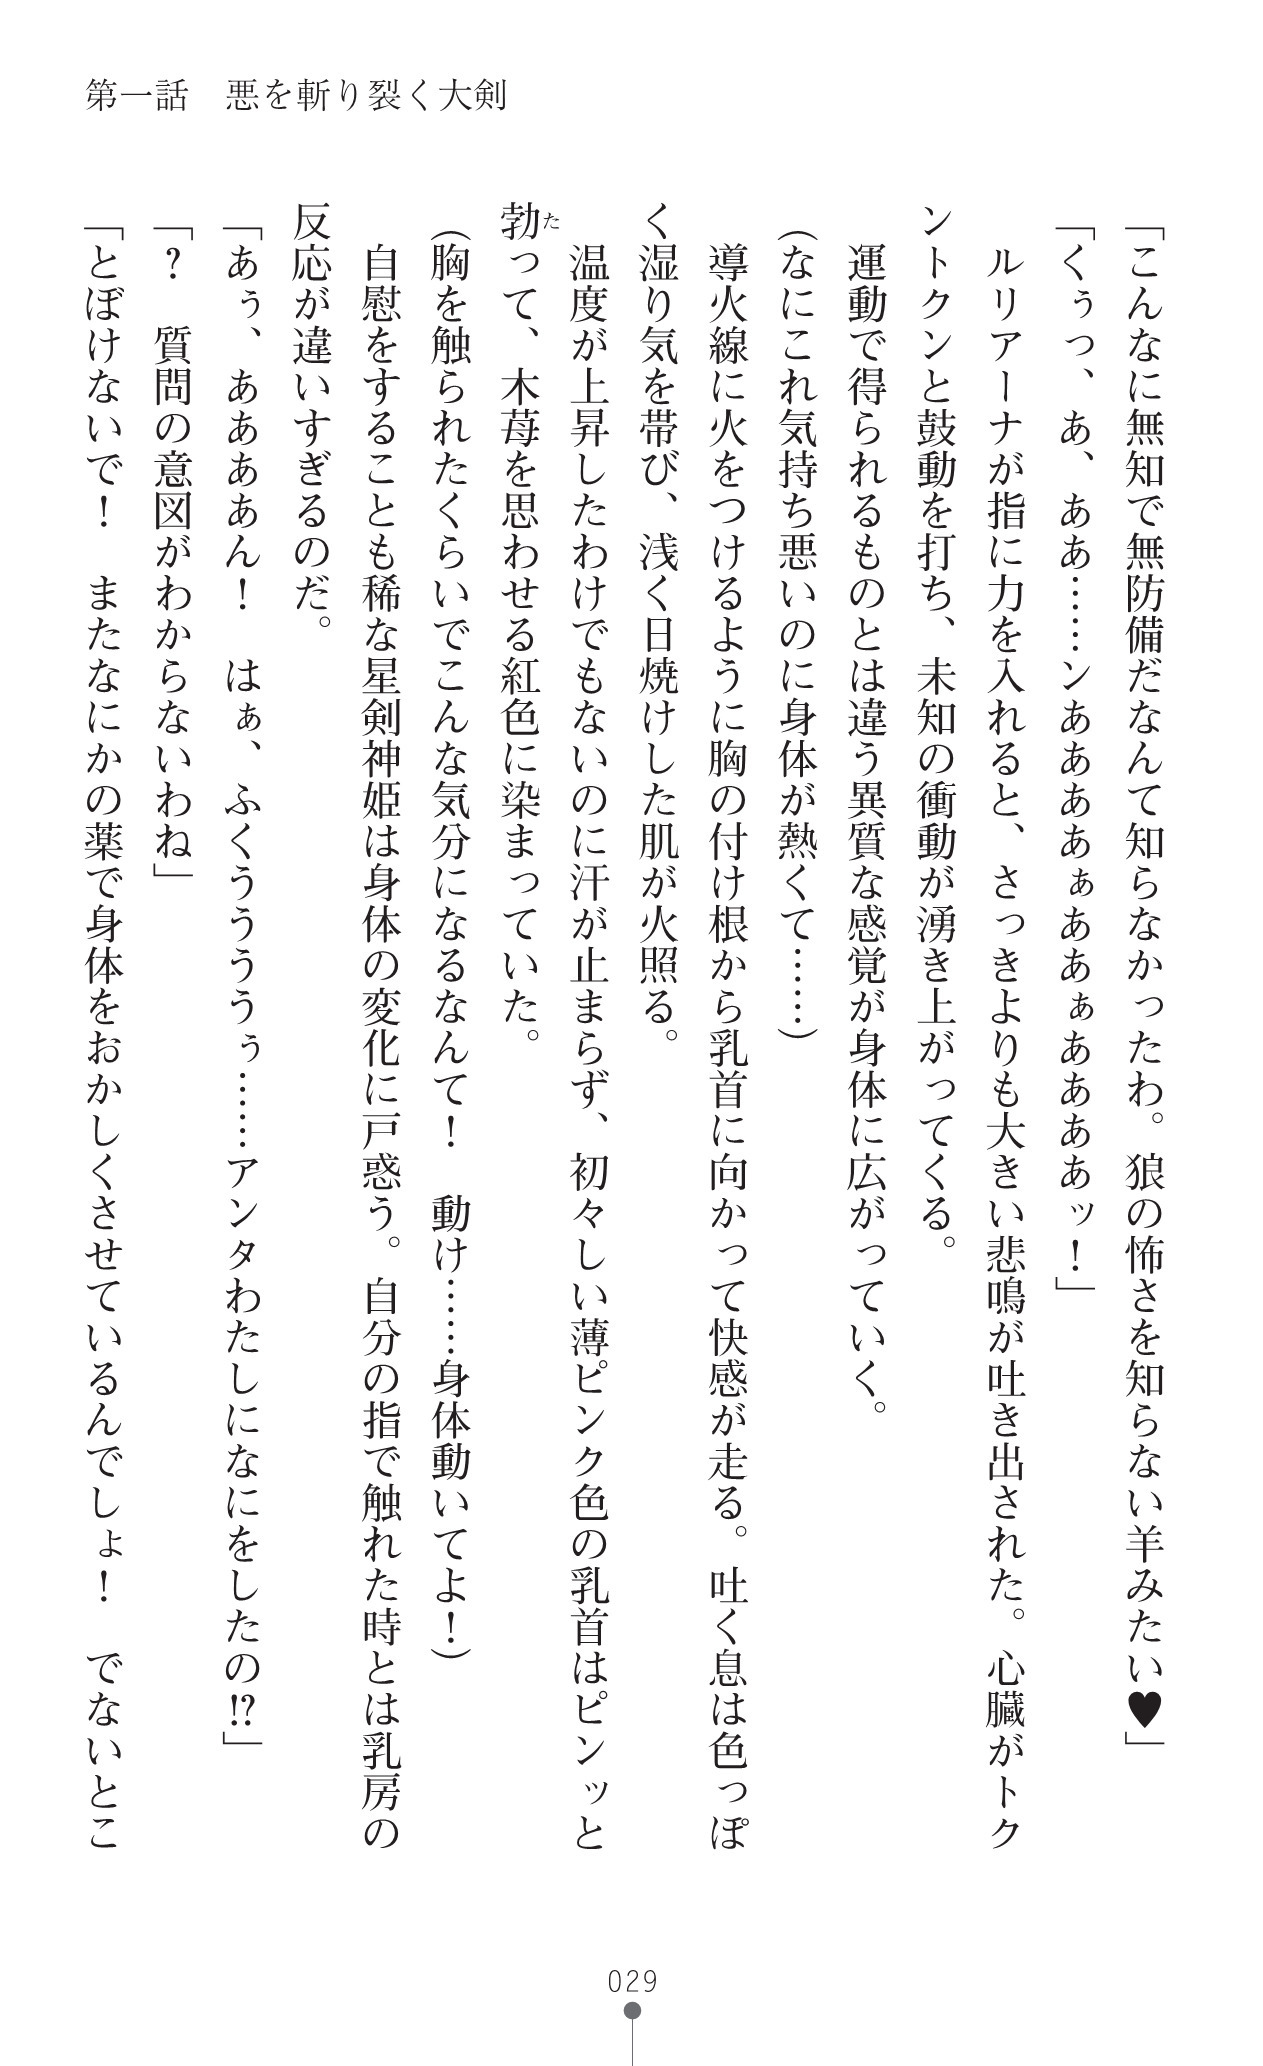 第一話　悪を斬り裂く大剣
「こんなに無知で無防備だなんて知らなかったわ。狼の怖さを知らない羊みたい♥」
「くぅっ、あ、ああ……ンああああぁああぁああああッ！」
　ルリアーナが指に力を入れると、さっきよりも大きい悲鳴が吐き出された。心臓がトク
ントクンと鼓動を打ち、未知の衝動が湧き上がってくる。
　運動で得られるものとは違う異質な感覚が身体に広がっていく。
（なにこれ気持ち悪いのに身体が熱くて……）
　導火線に火をつけるように胸の付け根から乳首に向かって快感が走る。吐く息は色っぽ
く湿り気を帯び、浅く日焼けした肌が火照る。
　温度が上昇したわけでもないのに汗が止まらず、初々しい薄ピンク色の乳首はピンッと
勃って、木苺を思わせる紅色に染まっていた。
た
（胸を触られたくらいでこんな気分になるなんて！　動け……身体動いてよ！）
　自慰をすることも稀な星剣神姫は身体の変化に戸惑う。自分の指で触れた時とは乳房の
反応が違いすぎるのだ。
「あぅ、ああああん！　はぁ、ふくううううぅ……アンタわたしになにをしたの!?」
「？　質問の意図がわからないわね」
「とぼけないで！　またなにかの薬で身体をおかしくさせているんでしょ！　でないとこ
029